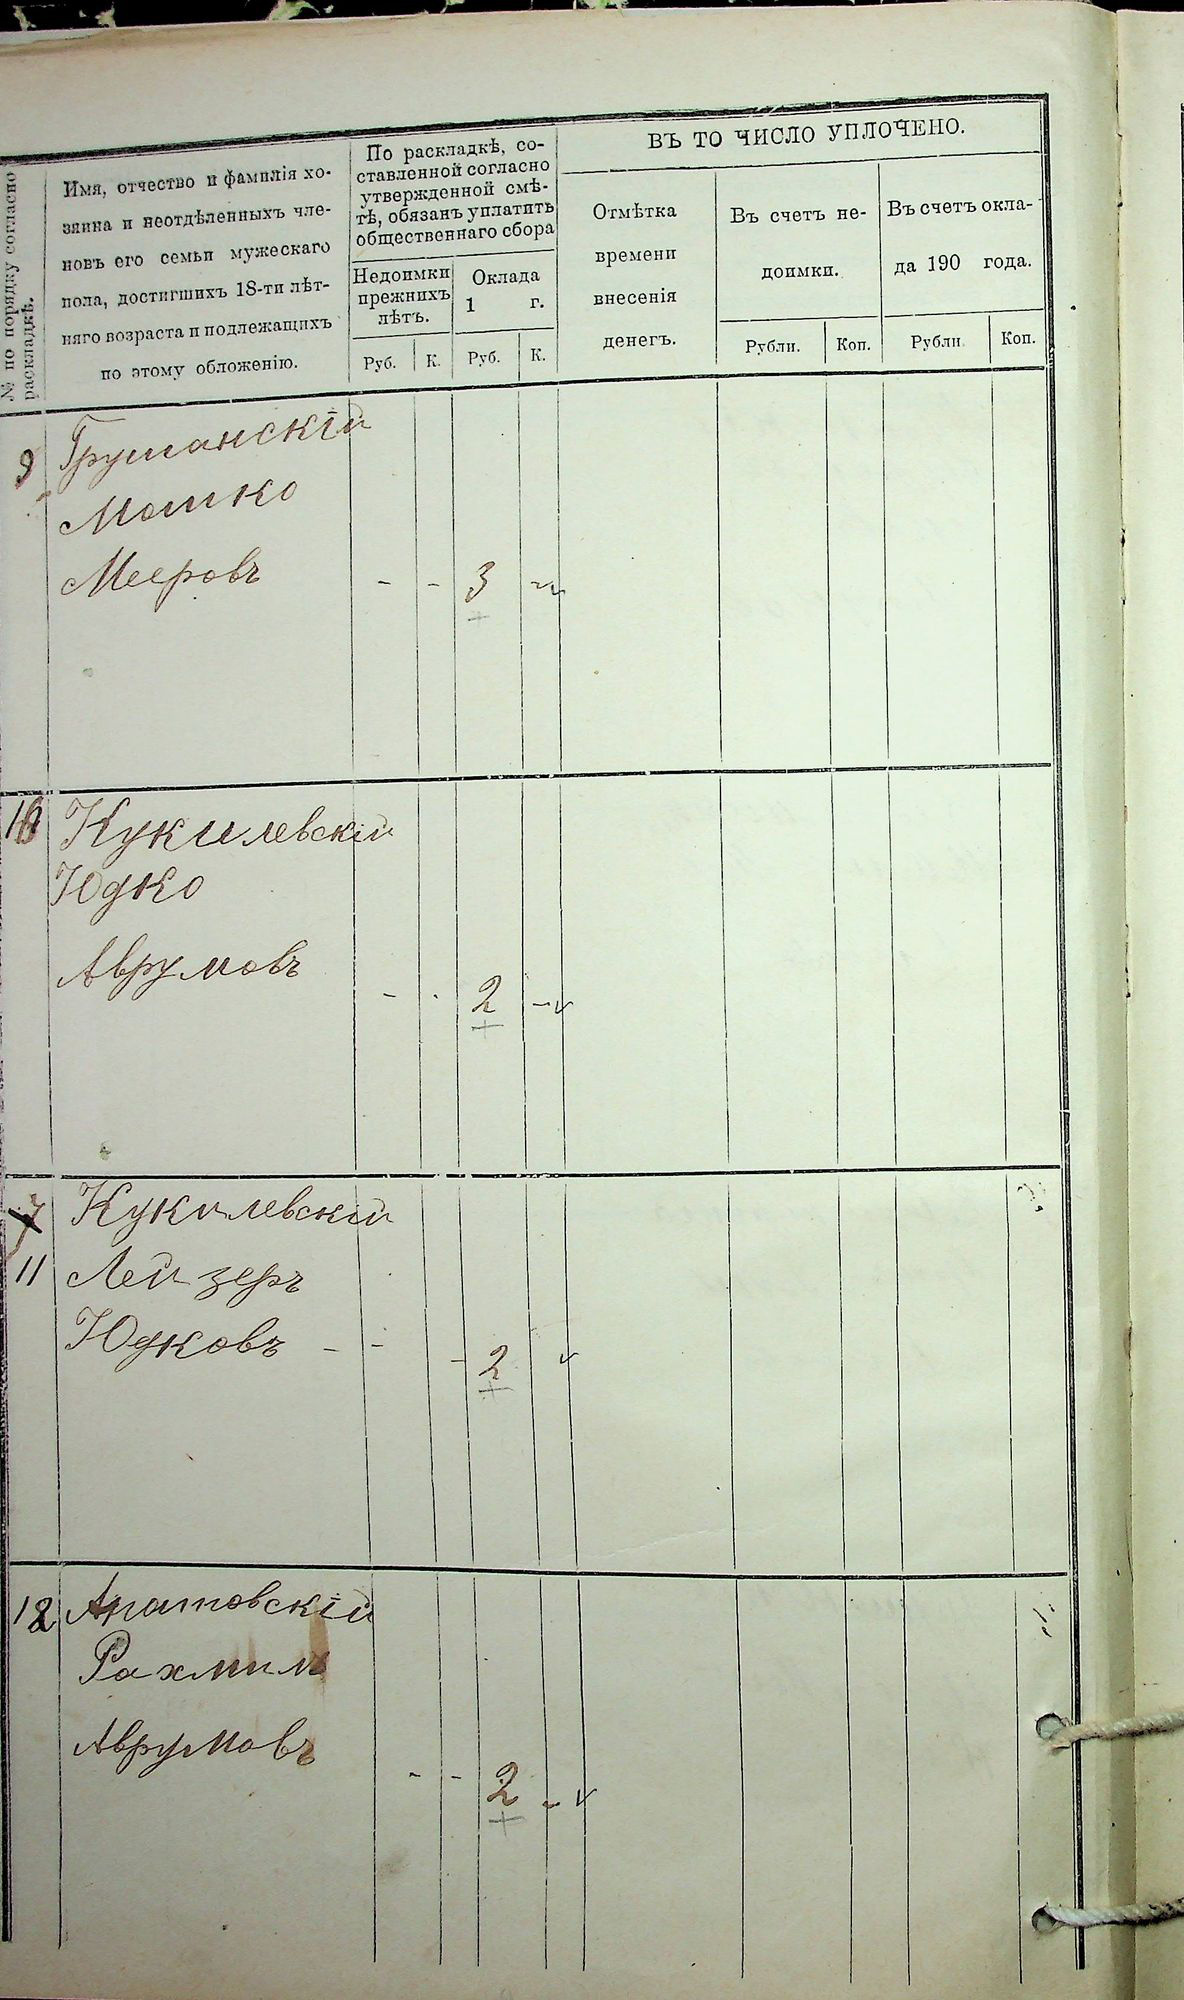 № по порядку согласно
раскладкѣ.
Имя, отчество и фамилія хо-
зяина и неотдѣленныхъ чле-
новъ его семьи мужескаго
пола, достигшихъ 18-ти лѣт-
няго возраста и подлежащихъ
по этому обложенію.
По раскладкѣ, со-
ставленной согласно
утвержденной смѣ-
тѣ, обязанъ уплатить
общественнаго сбора
Недоимки
прежнихъ
лѣтъ.
Оклада
1 г.
Руб. К. Руб. К.
ВЪ ТО ЧИСЛО УПЛОЧЕНО.
Отмѣтка
времени
внесенія
денегъ.
Въ счетъ не-
доимки.
Въ счетъ окла-
да 190 года.
Рубли. Коп. Рубли. Коп.
9 Грушанскій
Мошко
Мееровъ - - 3 -
Кукилевскій
Юдко
Аврумовъ - - 2 -
7 Кукилевскій
11 Лейзеръ
Юдковъ - - - 2
12 Апатовскій
Рахмиль
Аврумовъ - - 2 -